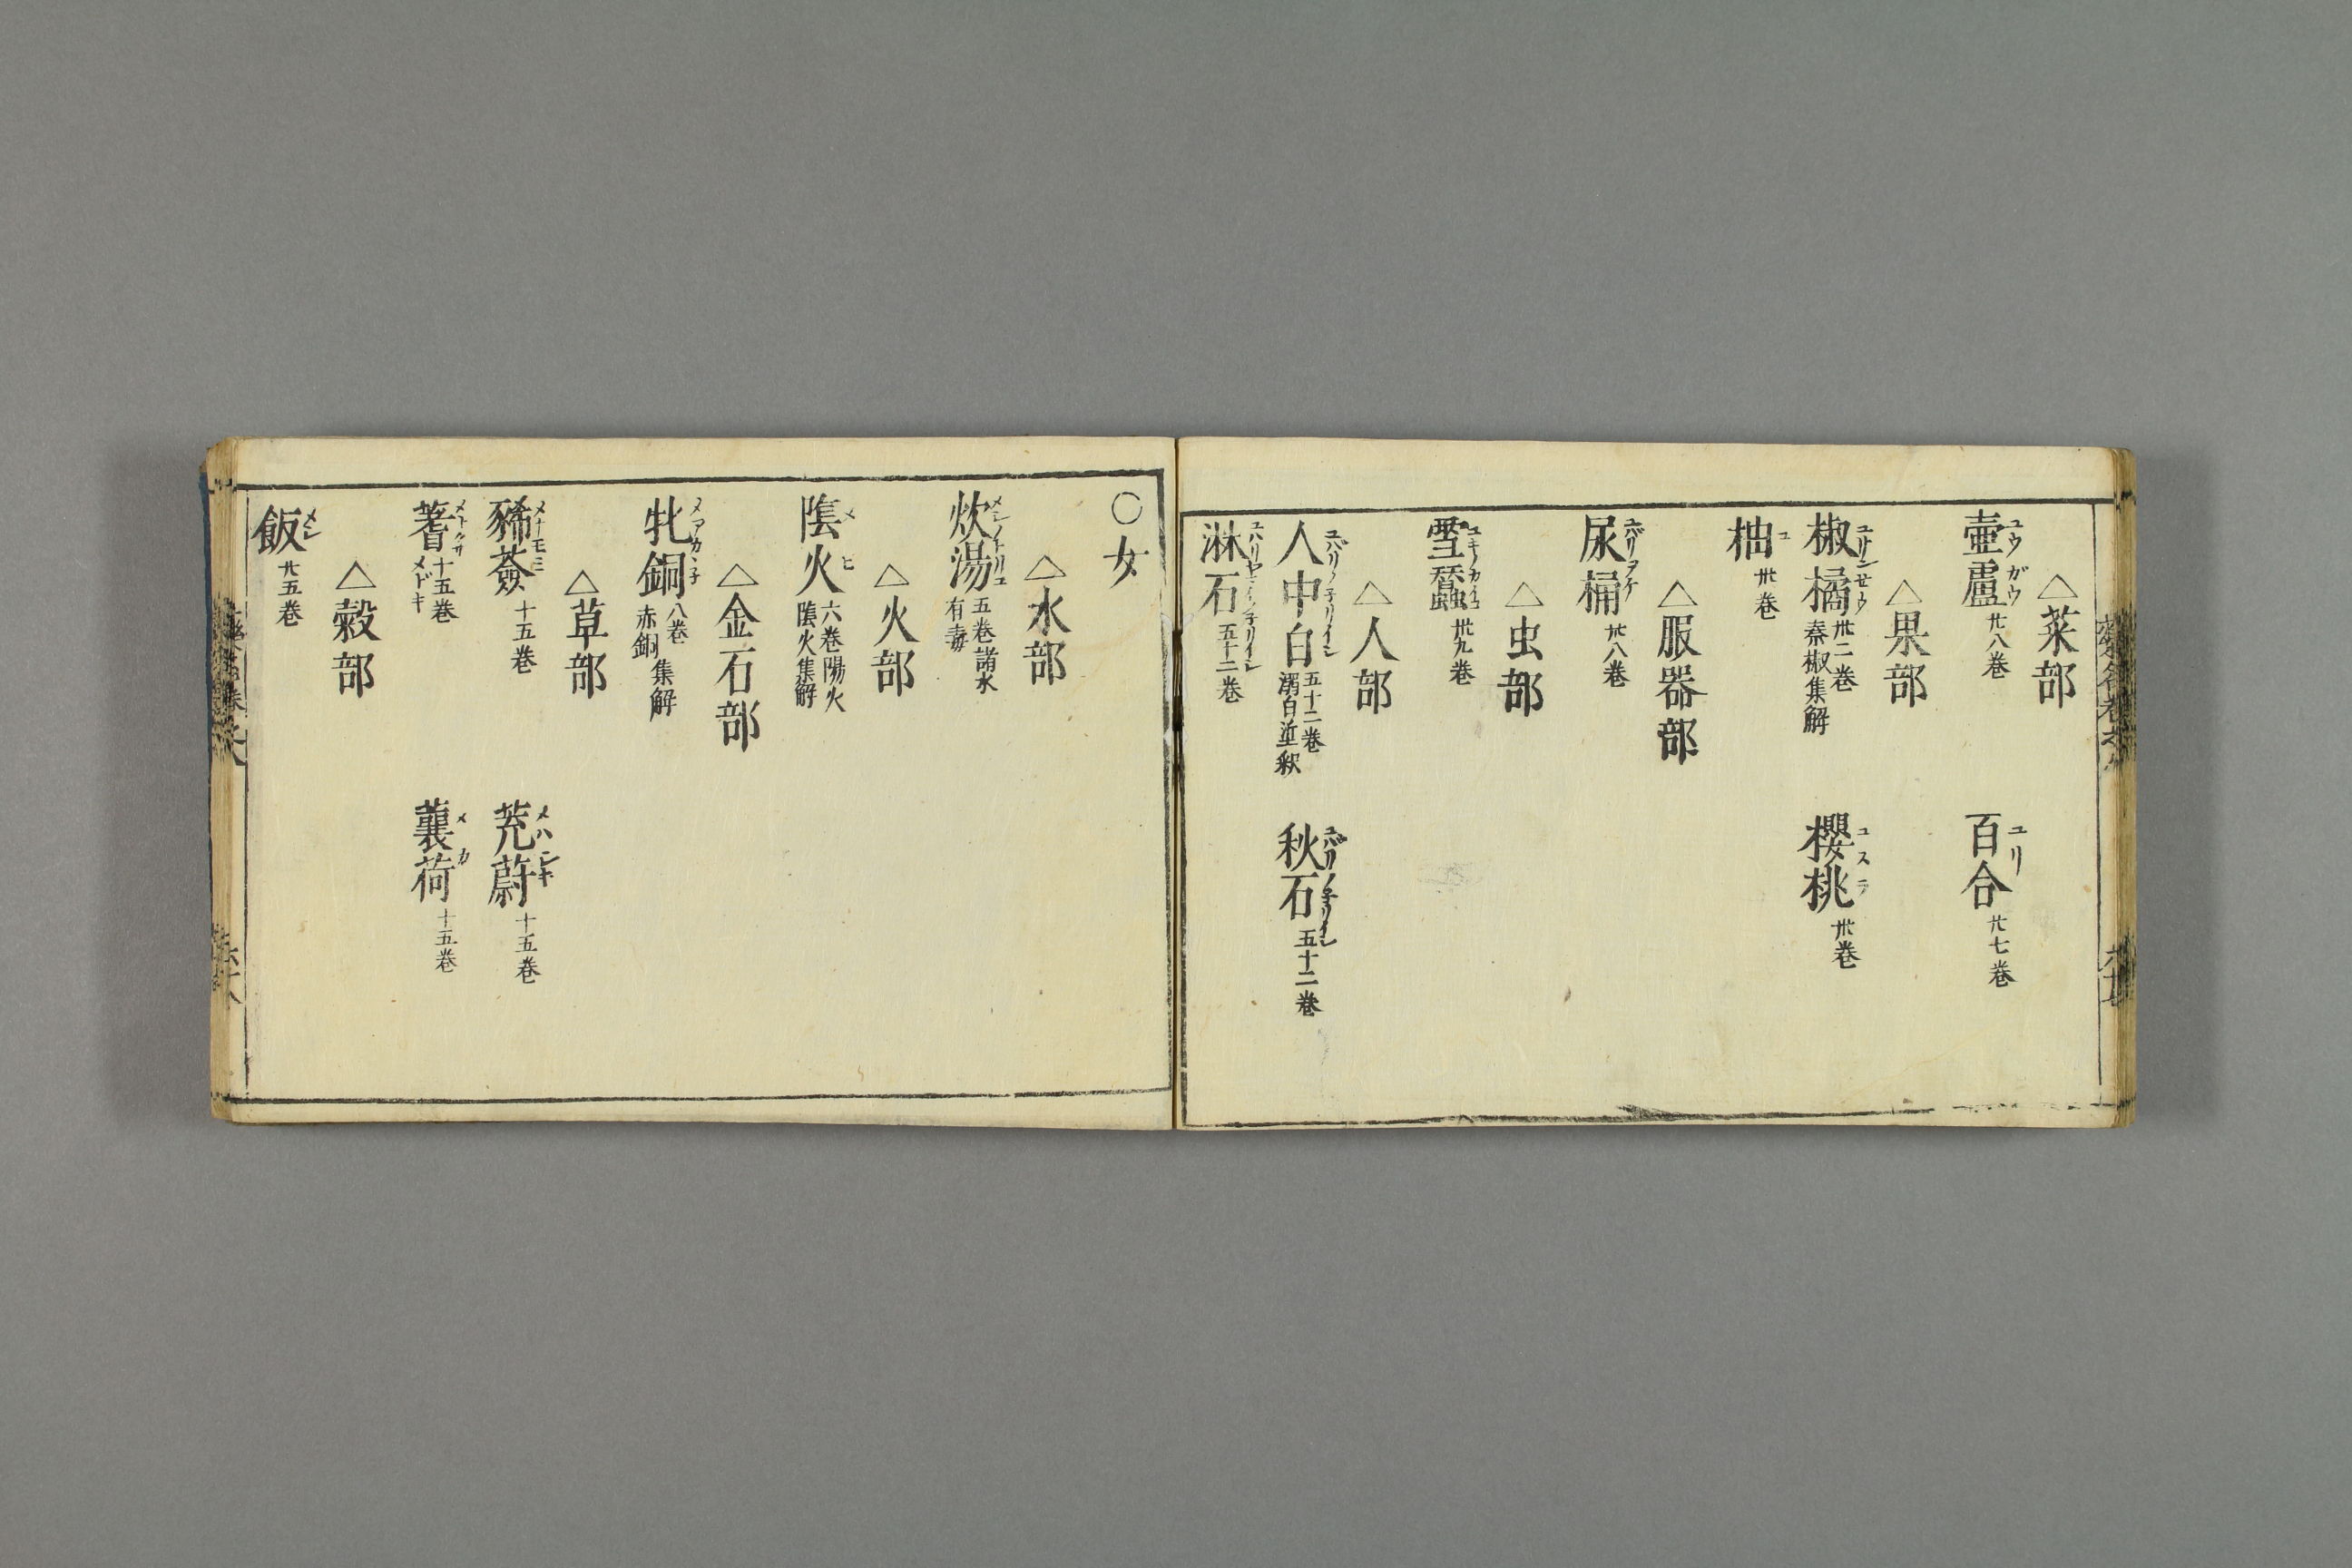 △菜部
壷盧 ユウガウ 廿八巻
百合 ユリ 廿七巻
△果部
椒橘 卅二巻 秦椒集解
櫻桃 ユスラ 卅巻
柚 ユ 卅巻
△服器部
尿桶 ユバリヲケ 卅八巻
△虫部
雪蠶 ユキノカイコ 卅九巻
△人部
人中白 ユバリノヲリイシ 五十二巻 溺白垽釈
秋石 ユバリノヲリイシ 五十二巻
淋石 五十二巻
○女
△水部
炊湯 五巻諸水有毒
△火部
陰火 メヒ 六巻陽火 陰火集解
△金石部
牝銅 メアカヽ子 八巻 赤銅集解
△草部
豨薟 メナモミ 十五巻
茺蔚 メハジキ 十五巻
蓍 メトグサ 十五巻 メドキ
蘘荷 メカ 十五巻
△穀部
飯 メシ 廿五巻